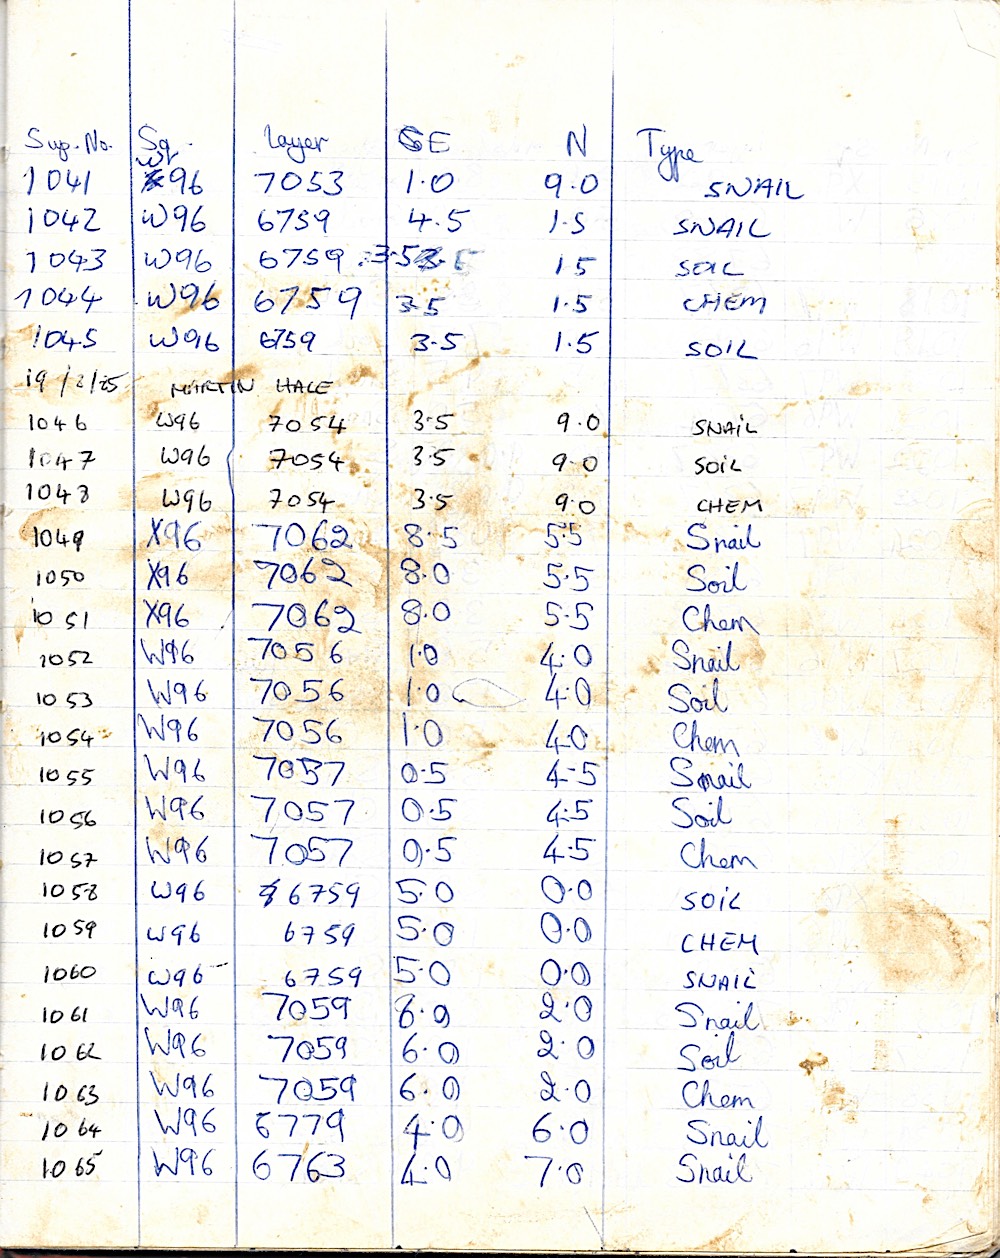 Sup. No. Sq. layer E N Type
1041 W96 7053 1.0 9.0 SNAIL
1042 W96 6759 4.5 1.5 SNAIL
1043 W96 6759 3.5 1.5 SOIL
1044 W96 6759 3.5 1.5 CHEM
1045 W96 6759 3.5 1.5 SOIL
19/2/85 MARTIN HALE
1046 W96 7054 3.5 9.0 SNAIL
1047 W96 7054 3.5 9.0 SOIL
1048 W96 7054 3.5 9.0 CHEM
1049 X96 7062 8.5 5.5 Snail
1050 X96 7062 8.0 5.5 Soil
1051 X96 7062 8.0 5.5 Chem
1052 W96 7056 1.0 4.0 Snail
1053 W96 7056 1.0 4.0 Soil
1054 W96 7056 1.0 4.0 Chem
1055 W96 7057 0.5 4.5 Snail
1056 W96 7057 0.5 4.5 Soil
1057 W96 7057 0.5 4.5 Chem
1058 W96 6759 5.0 0.0 SOIL
1059 W96 6759 5.0 0.0 CHEM
1060 W96 6759 5.0 0.0 SNAIL
1061 W96 7059 6.0 2.0 Snail
1062 W96 7059 6.0 2.0 Soil
1063 W96 7059 6.0 2.0 Chem
1064 W96 6779 4.0 6.0 Snail
1065 W96 6763 4.0 7.0 Snail